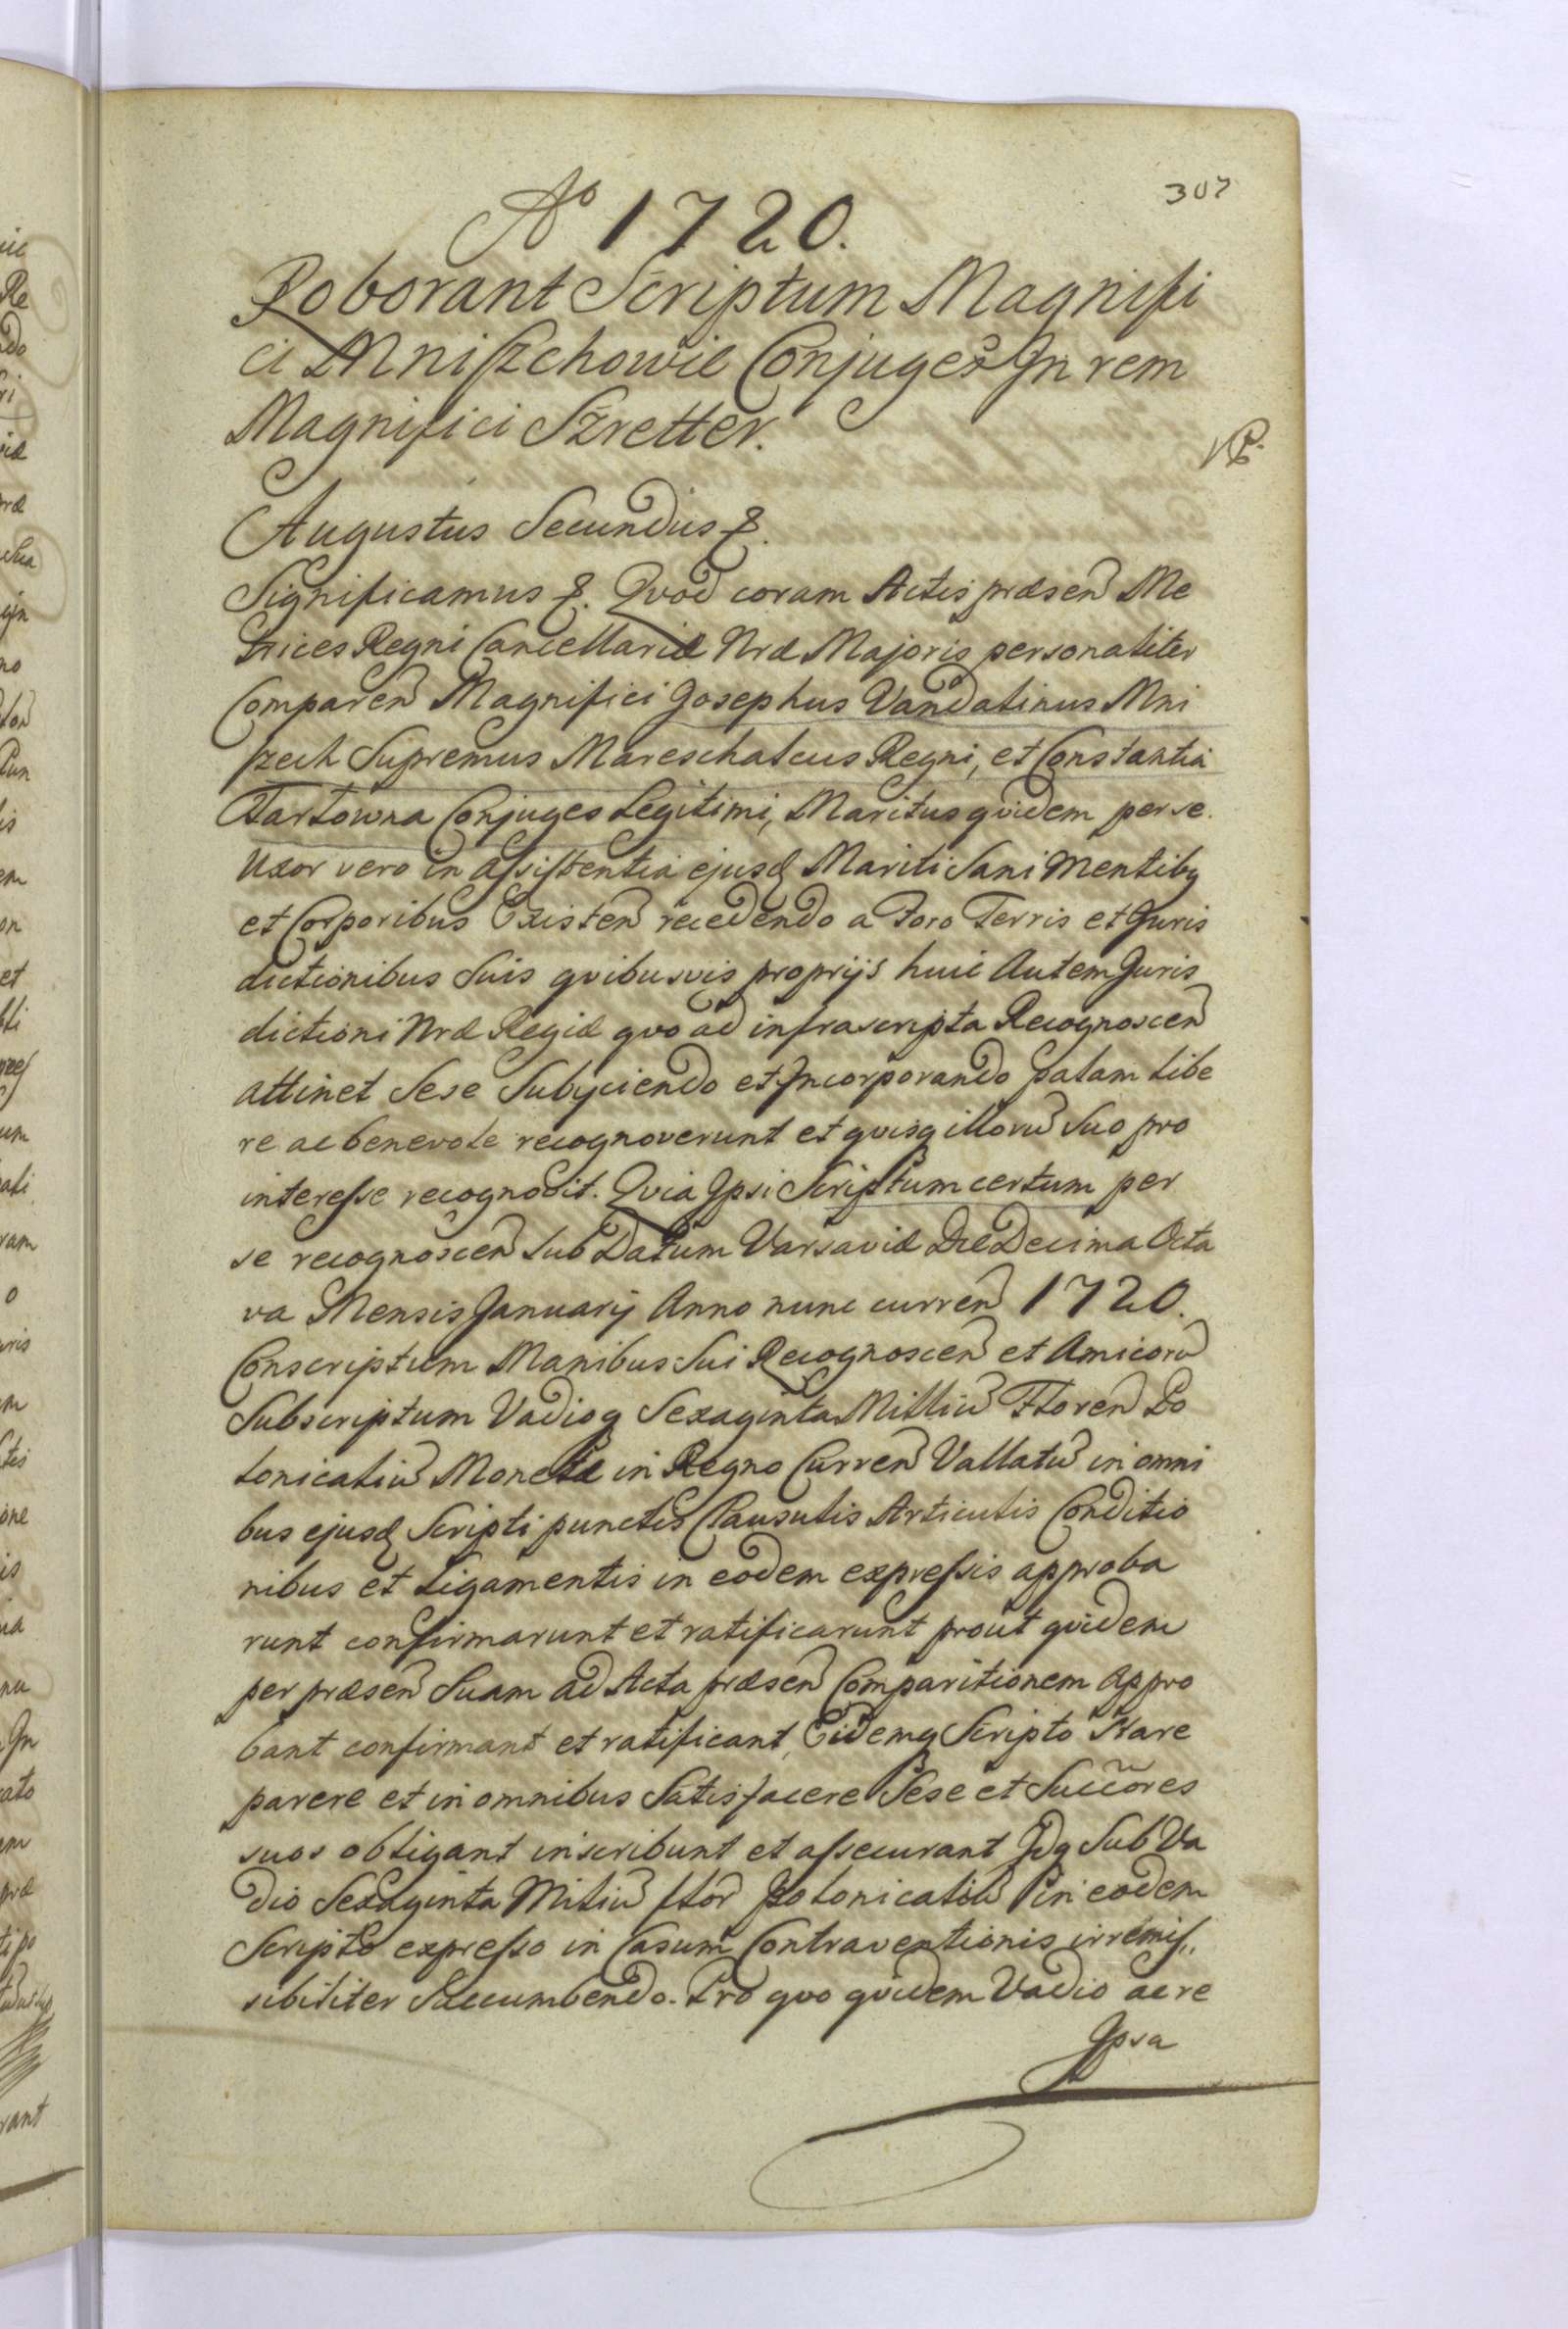 307
Aº 1720.
Roborant Scriptum Magnifi
ci Mniszchowie Conjuges In rem
Magnifici Szretter.
Augustus Secundus &.
Significamus &. Qvod coram Actis præsen̄ Me
trices Regni Cancellariæ Nræ Majoris personaliter
Comparen̄ Magnifici Josephus Vandalinus Mni
szech Supremus Mareschalcus Regni, et Constantia
Tarłowna Conjuges Legitimi, Maritus qvidem per se.
Uxor vero in assistentia ejusd Mariti Sani Mentibq
et Corporibus Existen̄ recedendo a Foro Terris et Juris
dictionibus Suis qvibusvis proprijs huic Autem Juris
dictioni Nræ Regiæ qvo ad infrascripta Recognoscen̄
attinet Sese Subijciendo et Incorporando palam libe
re ac benevole recognoverunt et qvisq illorū Suo pro
interesse recognovit. Qvia Ipsi Scriptum certum per
se recognoscen̄ Sub Datum Varsaviæ Die Decima Octa
va Mensis Januarij Anno nunc curren̄ 1720.
Conscriptum Manibus Sui Recognoscen̄ et Amicorū
Subscriptum Vadioq Sexaginta Milliū Floren̄ Po
lonicaliū Monetæ in Regno Curren̄ Vallatū in omni
bus ejusd Scripti punctis Clausulis Articulis Conditio
nibus et Ligamentis in eodem expressis approba
runt confirmarunt et ratificarunt prout qvidem
per præsen̄ Suam ad Acta præsen̄ Comparitionem appro
bant confirmant et ratificant, Eidemq Scripto Stare
parere et in omnibus Satisfacere Sese et Succ̄ores
suos obligant inscribunt et assecurant Idq Sub Va
dio Sexaginta Miliū flor̄ Polonicaliū in eodem
Scripto expresso in Casum Contraventionis irremis„
sibiliter Succumbendo. Pro qvo qvidem Vadio ac re
Ipsa